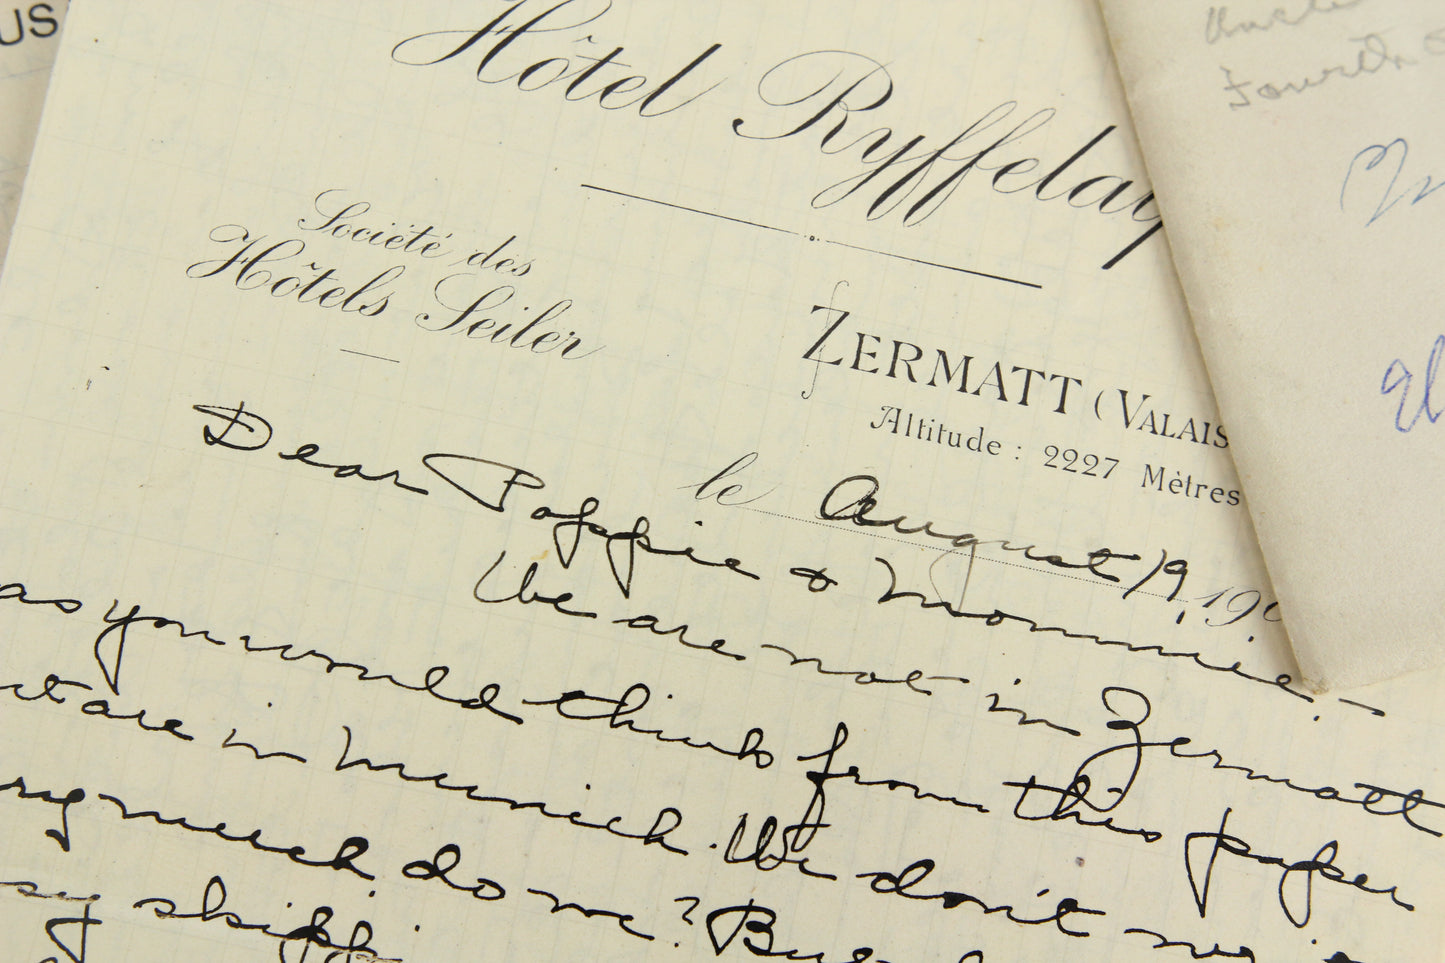 US
Hôtel Ryffelay
Société des
Hôtels Seiler
ZERMATT (VALAIS
Altitude : 2227 Mètres
le August 19, 190
Dear Poppie & Mommie. —
We are not in Zermatt
as you would think from this paper
are in Munich. We don't
much, do we?
skipp
Uncle
Fourth